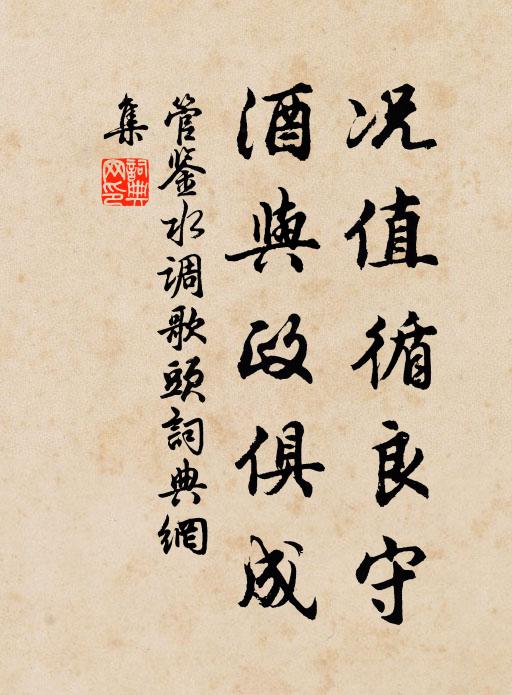 况值循良守
酒與政俱成
管鉴水调歌頭詞典網
集
詞典
网印